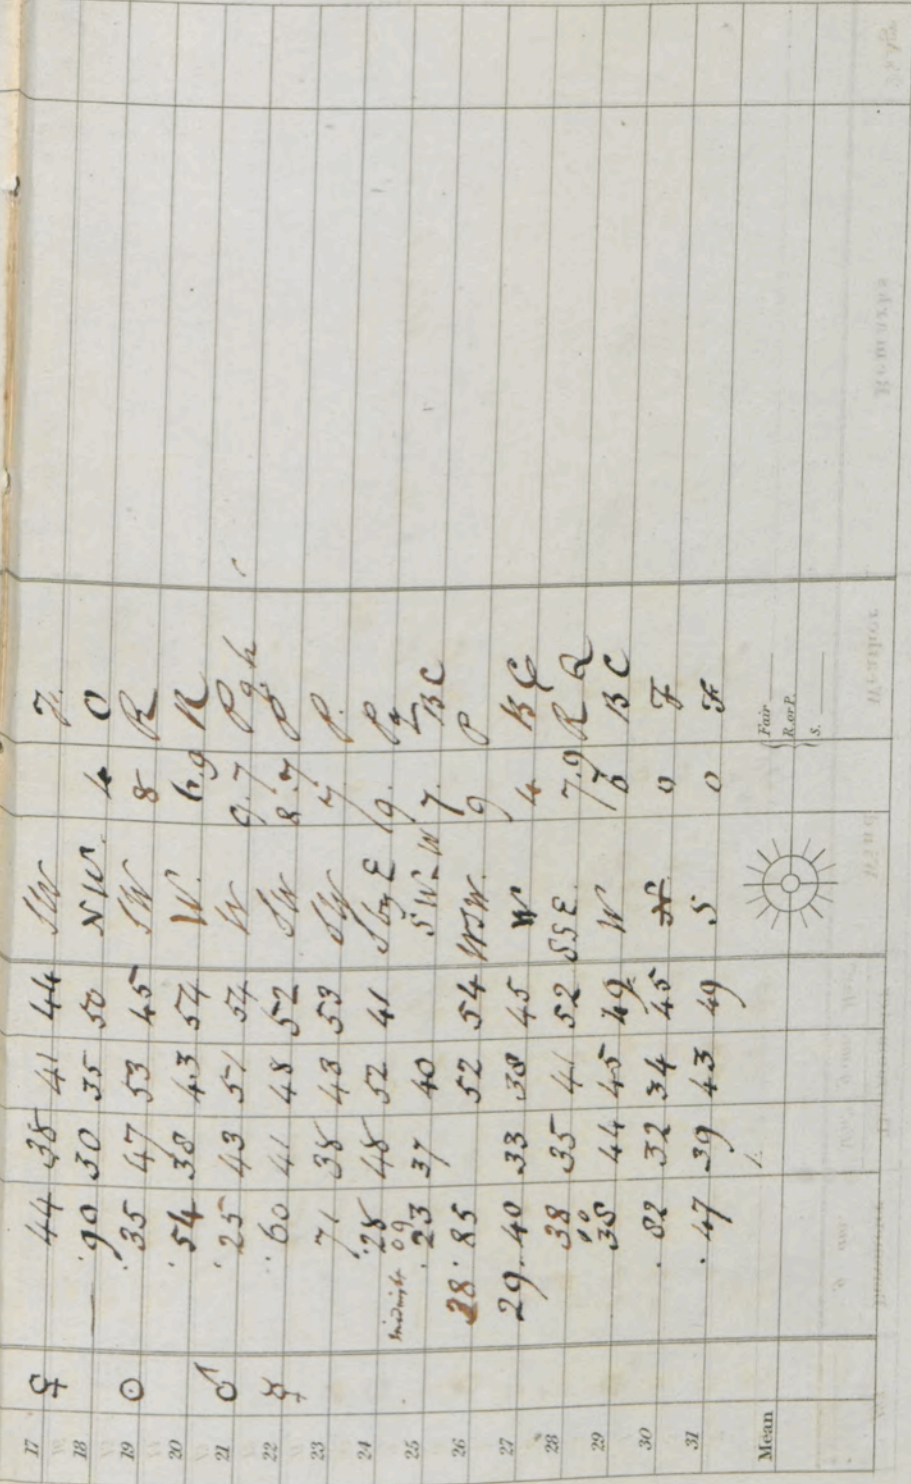 17 ♀ 44 38 41 44 SW 7.
18 — .90 30 35 50 NW. 4 O
19 ☉ .35 47 53 45 SW 8 R
20 .54 38 43 54 W. 6.9 R
21 ♂ .25 43 51 54 W 9.7 P q.h
22 ☿ .60 41 48 52 SW 8.7 P
23 71 38 43 53 SW 7 P.
24 .28 48 52 41 S by E 9.
Midnight 09
25 .23 37 40 SW-W 7. BC
26 28.85 52 54 WSW. 9 P
27 29.40 33 38 45 W 4
28 38 35 41 52 SSE. 7.9 R
29 38 44 45 49 W BC
30 .82 32 34 45 0 F
31 .47 39 43 49 S 0 F
Mean
Fair
R. or P.
S.